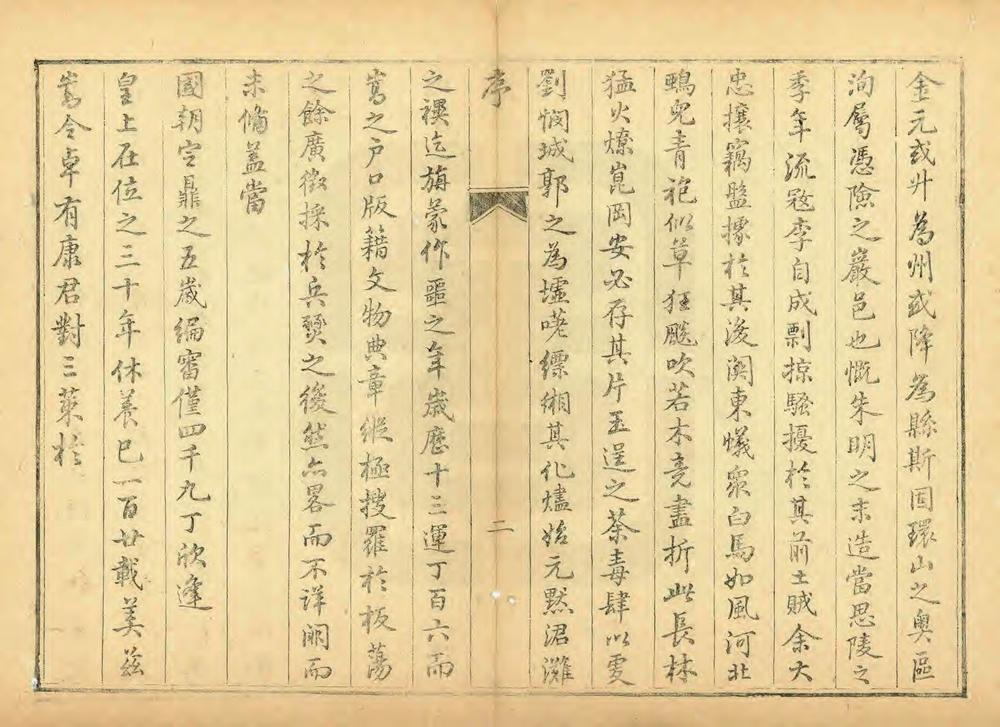 金元或升為州或降為縣斯固環山之奧區
洵屬憑險之巖邑也慨朱明之末造當思陵之
季年流寇李自成剽掠騷擾於其前土賊余大
忠攘竊盤據於其後關東蟻眾白馬如風河北
鴟兒青袍似草狂飈吹若木竟盡折此長林
猛火燎崑岡安必存其片玉逞之荼毒肆以雯
劉憫城郭之為墟嗟縹緗其化燼始元黓涒灘
序
二
之禩迄旃蒙作噩之年歲歷十三運丁百六而
嵩之戶口版籍文物典章縱極搜羅於板蕩
之餘廣徵採於兵燹之後然亦畧而不詳闕而
未備蓋當
國朝定鼎之五歲編審僅四千九丁欣逢
皇上在位之三十年休養已一百廿載美茲
嵩令卓有康君對三萊於